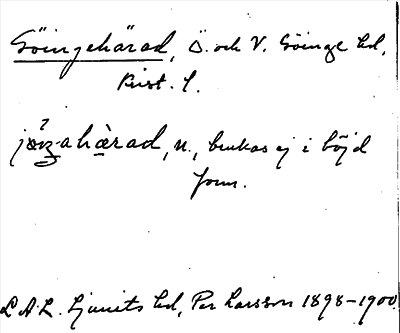 Göingehärad, Ö. och V. Göinge hd,
Krist. l.
ahärad, n., brukas ej i böjd
form.
L.A.L. Ljunits hd, Per Larsson 1898-1900.